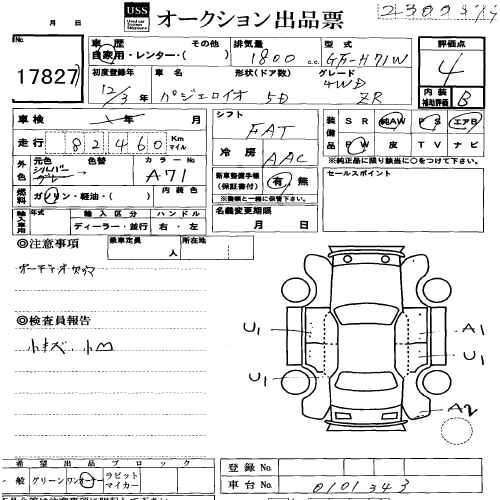 USS オークション出品票
月 日
No. 17827
車歴 その他 排気量 型式 評価点
自家用・レンター・( ) 1800 c.c. GF-H71W 4
初度登録年 車名 形状(ドア数) グレード 内装 補助評価 B
12/3年 パジェロイオ 5D 4WD ZR
車検 年 月 シフト FAT 装備品 SR 純AW PS エアB
走行 82460 Km マイル PW 皮 TV ナビ
冷房 AAC ※純正品に限り該当に○をつけて下さい。
外色 元色 色替 カラーNo. セールスポイント
シルバー グレー A71 新車整備手帳(保証書付) 有・無
燃料 ガソリン・軽油・( ) 内装色 ※書類と一緒に保管下さい。
輸入車用 年式 輸入区分 ハンドル 名義変更期限
ディーラー・並行 右・左 月 日
◎注意事項 乗車定員 人 所在地
◎検査員報告
U1 A1
U1
U1
A2
希望出品ブロック
一般 グリーン ワン ラビット マイカー
登録No.
車台No. 0101343